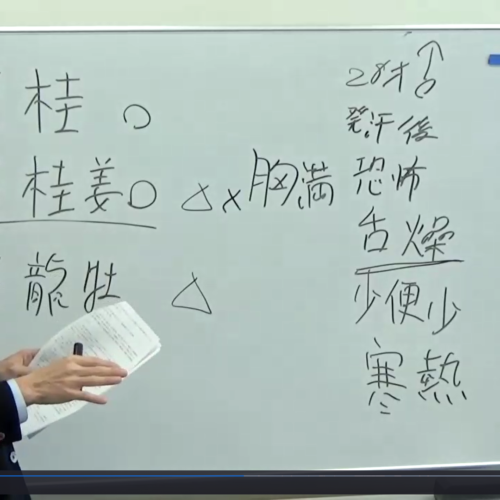 桂 ○
桂姜○ △×胸満
龍牡 △
28才♂
発汗後
恐怖
舌燥
少便少
寒熱